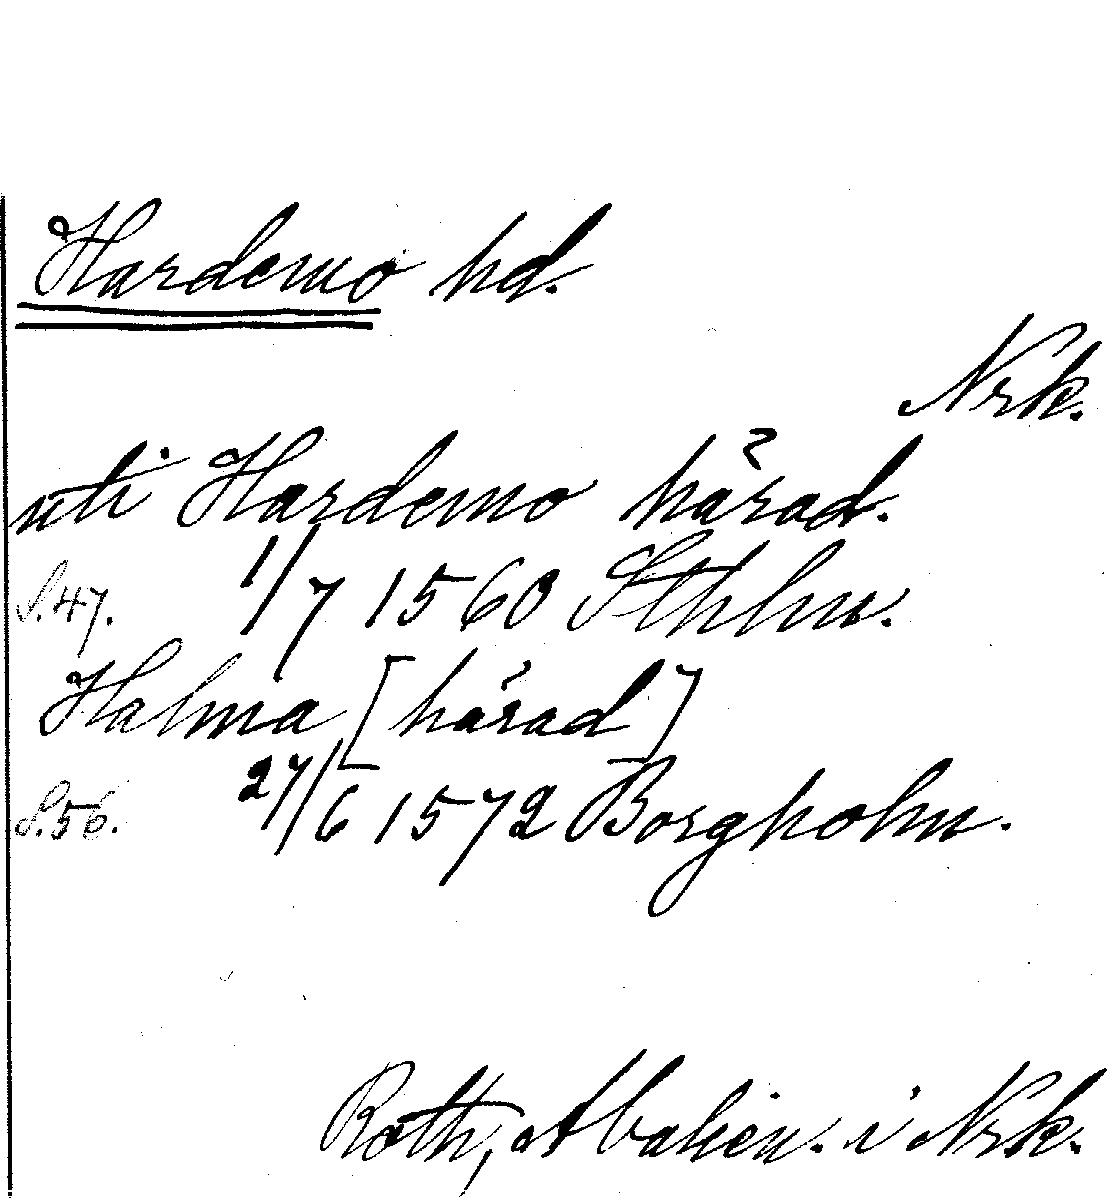 Hardemo hd.
Nrk.
uti Hardemo härad.
S. 47. 1/7 1560 Sthlm.
Halma [härad]
S. 56. 27/6 1572 Borgholm.
Roth, Abalien. i Nrk.